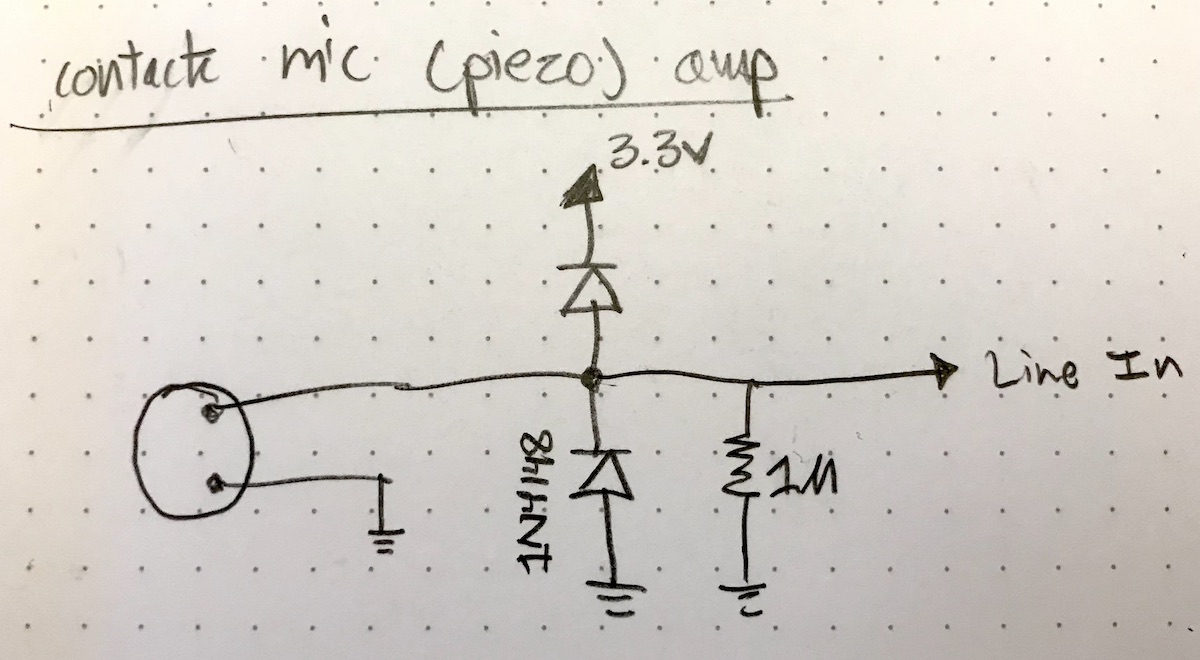 contact mic (piezo) amp
3.3V
Line In
1N4148
1M